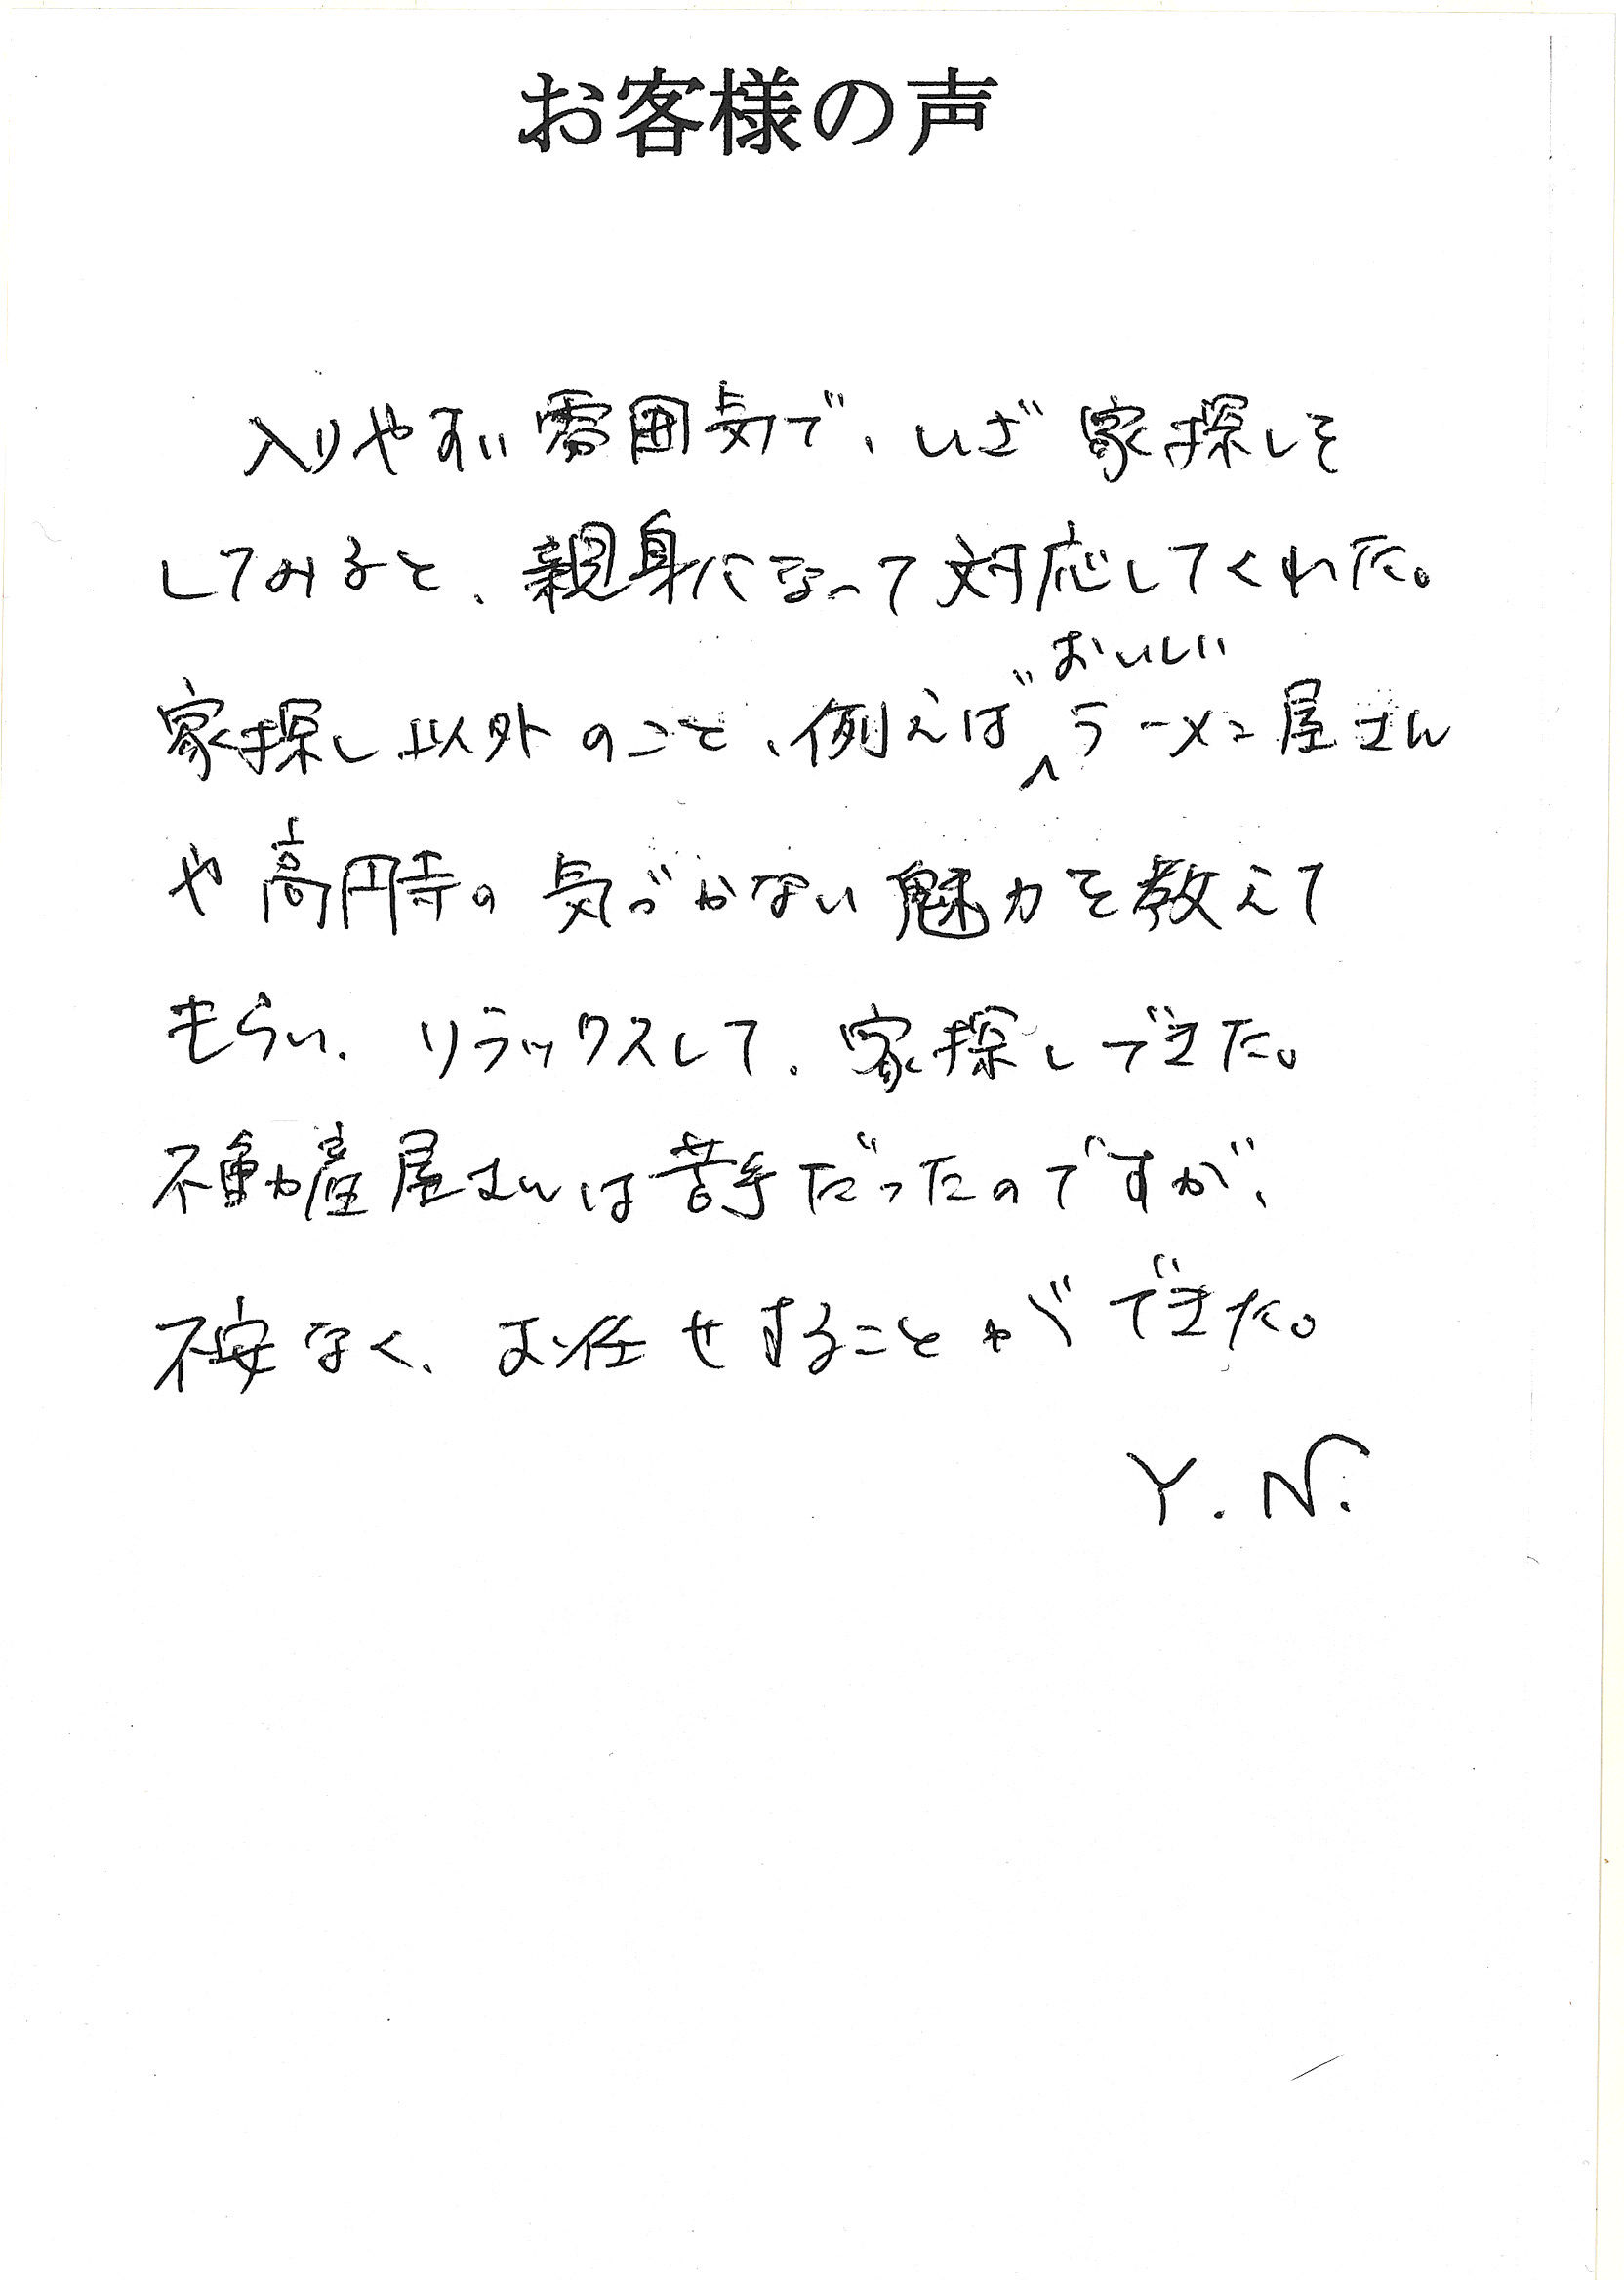 お客様の声
入りやすい雰囲気で、いざ家探しを
してみると、親身になって対応してくれた。
家探し以外のこと、例えばおいしいラーメン屋さん
や高円寺の気づかない魅力を教えて
もらい、リラックスして、家探しできた。
不動産屋さんは苦手だったのですが、
不安なく、お任せすることができた。
Y.N.